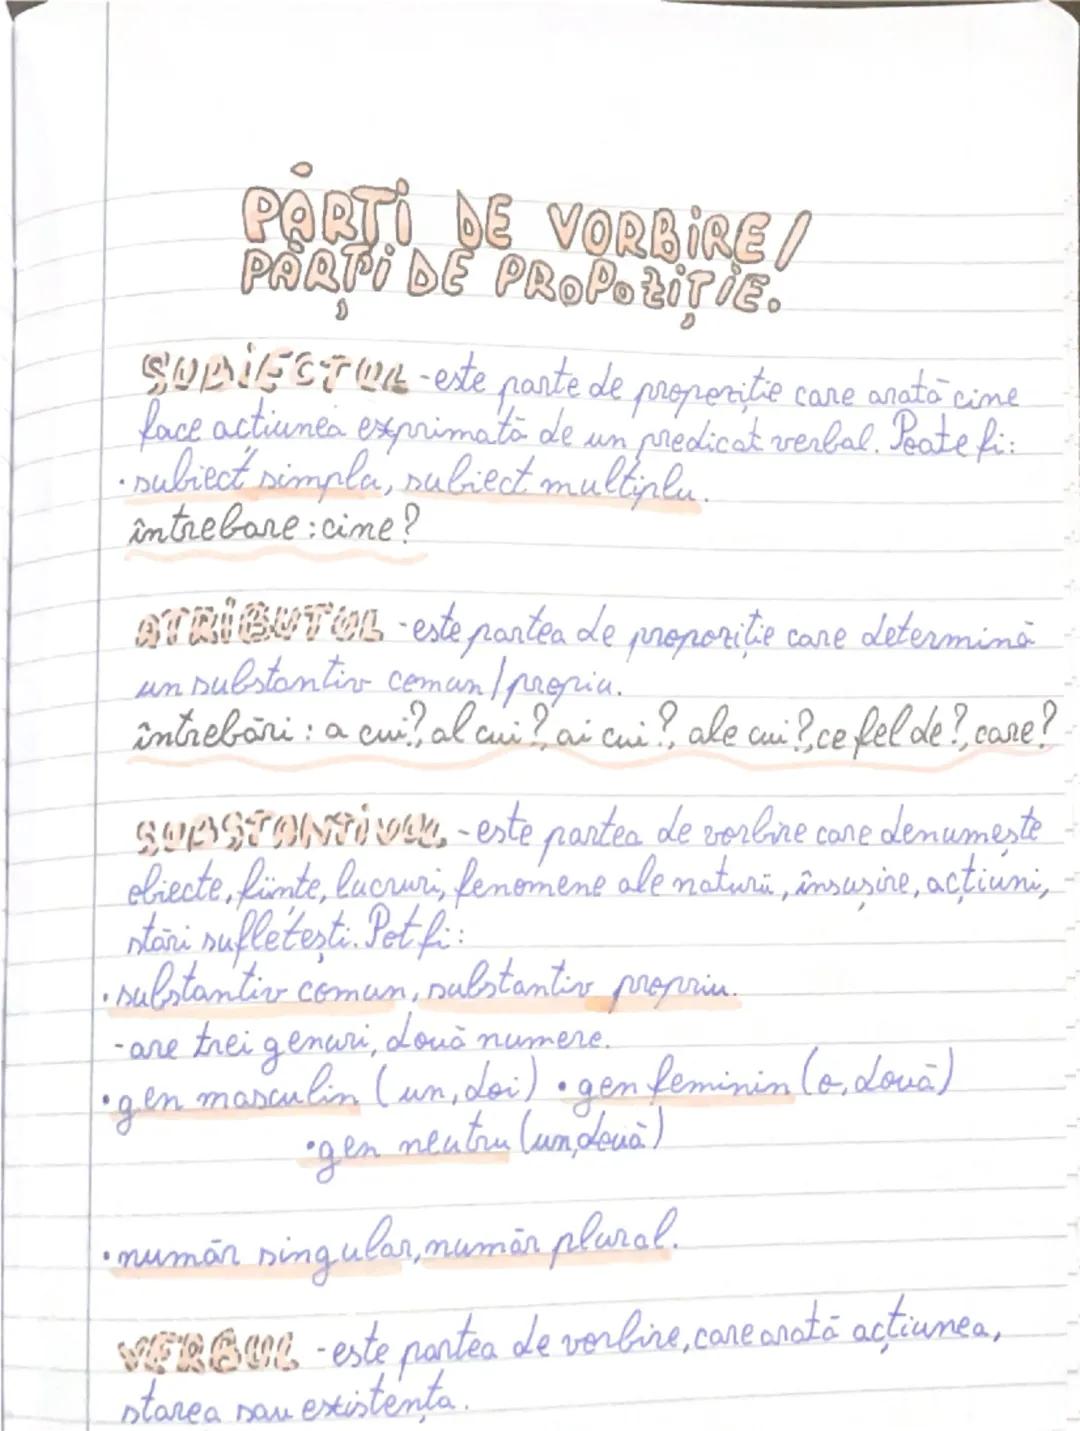 PĂRȚI DE VORBIRE/
PĂRȚI DE PROPOZIȚIE.
SUBIECTUL - este parte de propoziție care arată cine
face acțiunea exprimată de un predicat verbal. Poate fi:
• subiect simplu, subiect multiplu.
întrebare: cine?
ATRIBUTUL - este partea de propoziție care determină
un substantiv comun/propriu.
întrebări: a cui?, al cui?, ai cui?, ale cui?, ce fel de?, care?
SUBSTANTIVUL - este partea de vorbire care denumește
obiecte, ființe, lucruri, fenomene ale naturii, însușire, acțiuni,
stări sufletești. Pot fi:
• substantiv comun, substantiv propriu.
- are trei genuri, două numere.
• gen masculin (un, doi) • gen feminin (o, două)
• gen neutru (un, două)
• număr singular, număr plural.
VERBUL - este partea de vorbire, care arată acțiunea,
starea sau existența.